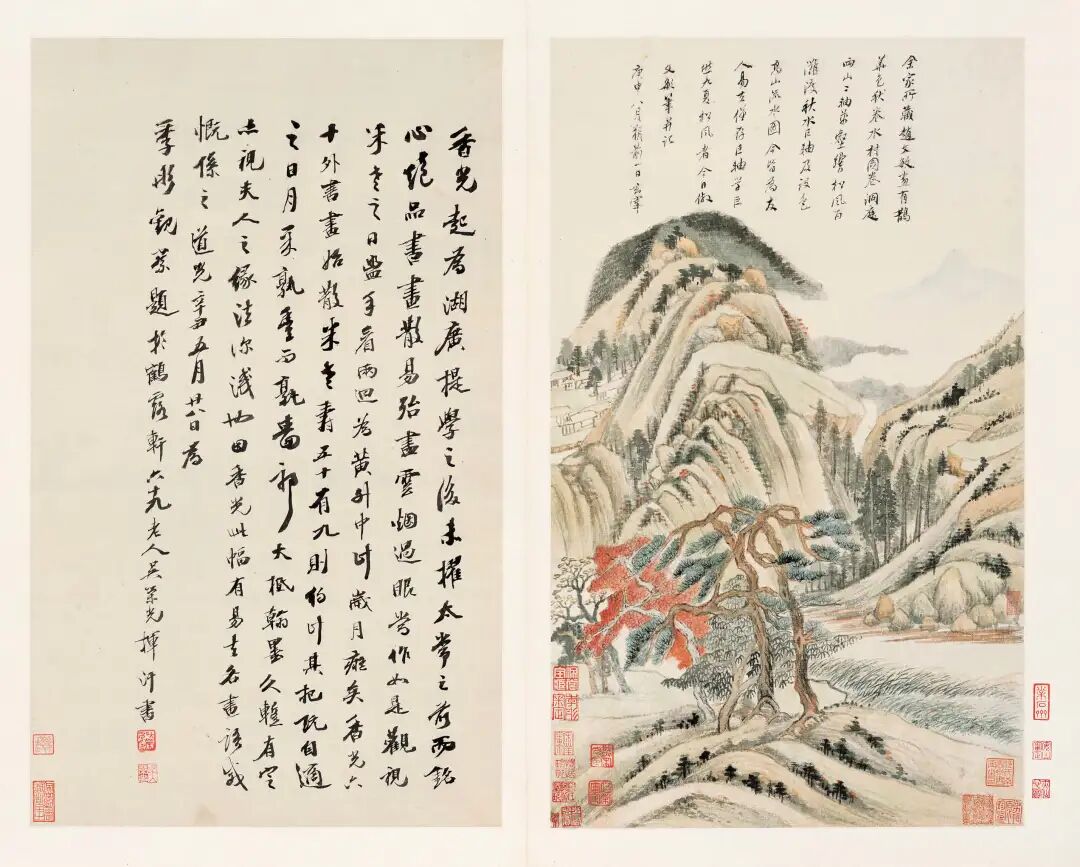 余家所藏趙文敏畫有鵲
華色秋卷水村圖卷洞庭
兩山二軸萬壑響松風百
灘渡秋水巨軸及設色
高山流水圖今皆為友
人易去僅存巨軸學巨
然九夏松風者今日倣
文敏筆并記
庚申八月朔前一日玄宰
香光起為湖廣提學之後未擢太常之前西銘
心絕品書畫散易殆盡雲烟過眼當作如是觀視
米老之日盥手看兩迴為黃中計歲月癡矣香光六
十外書畫始散米老壽五十有九則約計其把玩自適
之日月米孰而孰嗇邪大抵翰墨久暫有定
亦視夫人之緣法深淺也因香光此幅有易去名畫語感
慨係之道光辛丑五月廿八日為
季彤觀察題於鶴露軒六十九老人吳榮光揮汗書